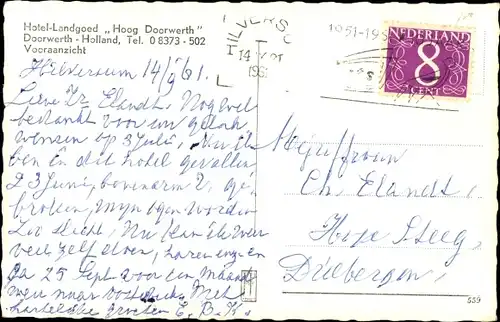 Hotel-Landgoed „Hoog Doorwerth"
Doorwerth - Holland, Tel. 0 8373 - 502
Vooraanzicht
Hilversum 14/9 '61.
Lieve Zr Elandt, Nog wel
bedankt voor uw geluk
wensen op 3 Juli. Nu ik
ben in dit hotel gevallen
23 Juni, bovenarm ge-
broken, mijn ogen worden
zo slecht. Nu kan ik weer
veel zelf doen, haren enz en
ga 25 Sept voor een maand
weer naar Met
hartelijke groeten E. B. K.
Mejuffrouw
Ch. Elandt
Hoge Steeg
Driebergen
HILVERS
14
196
1951-19
NEDERLAND
8
CENT
559